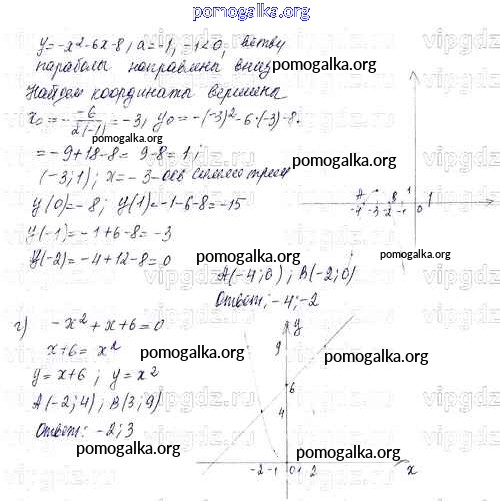 pomogalka.org
y=-x²-6x-8, a=-1, -1<0, ветви
параболы направлены вниз
pomogalka.org
Найдем координаты вершины
x₀=-\frac{-6}{2(-1)}=-3, y₀=-(-3)²-6·(-3)-8.
pomogalka.org
=-9+18-8=9-8=1;
(-3;1); x=-3-ось симметрии
y(0)=-8; y(1)=-1-6-8=-15
y(-1)=-1+6-8=-3
y(-2)=-4+12-8=0
A B 1
-4 -3 -2 -1 0 1
pomogalka.org pomogalka.org
A(-4;0); B(-2;0)
Ответ: -4; -2
г) -x²+x+6=0
x+6=x²
pomogalka.org pomogalka.org
y=x+6; y=x²
A(-2;4), B(3;9)
Ответ: -2; 3
pomogalka.org
y
9
6
4
-2 -1 0 1 2 x
pomogalka.org
vipgdz.ru